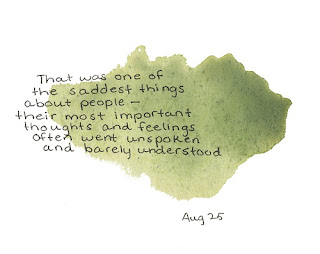 That was one of
the saddest things
about people —
their most important
thoughts and feelings
often went unspoken
and barely understood
Aug 25